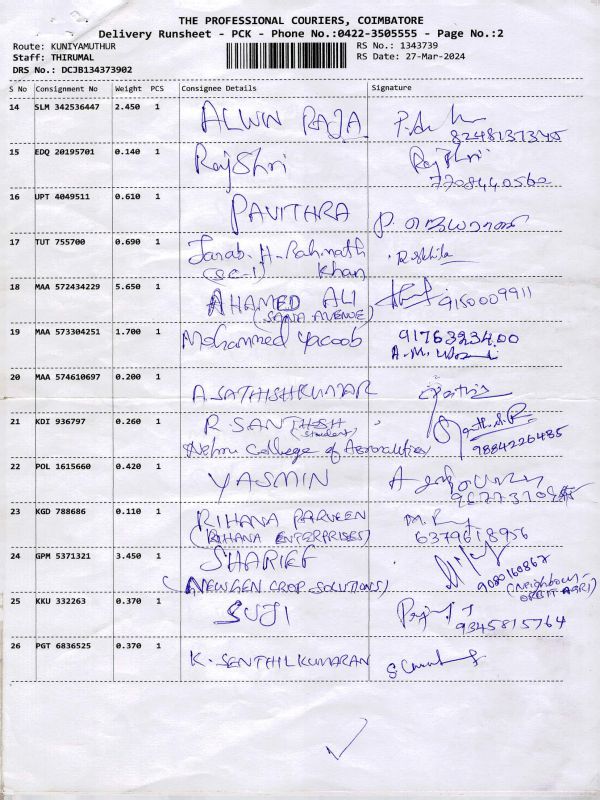 THE PROFESSIONAL COURIERS, COIMBATORE
Delivery Runsheet - PCK - Phone No.:0422-3505555 - Page No.:2
Route: KUNIYAMUTHUR RS No.: 1343739
Staff: THIRUMAL RS Date: 27-Mar-2024
DRS No.: DCJB134373902
S No Consignment No Weight PCS Consignee Details Signature
14 SLM 342536447 2.450 1 ALWIN RAJA
8248137345
15 EDQ 20195701 0.140 1 RajShri RajShri
7708440560
16 UPT 4049511 0.610 1 PAVITHRA P.
17 TUT 755700 0.690 1 Janab. H. Rahmath
(SC-1) Khan
18 MAA 572434229 5.650 1 AHAMED ALI 9150009911
(SANA AVENUE)
19 MAA 573304251 1.700 1 Mohammed Yacoob 9176323400
A.M.
20 MAA 574610697 0.200 1 A.SATHISHKUMAR
21 KDI 936797 0.260 1 R SANTHOSH
(Student)
Nehru College of Aeronautics 9884226485
22 POL 1615660 0.420 1 YASMIN A
23 KGD 788686 0.110 1 RIHANA PARVEEN M.
(RIHANA ENTERPRISES) 6379618956
24 GPM 5371321 3.450 1 SHARIEF
9080160867
(NEWGEN CROP SOLUTIONS) (Neighbour
ORBIT AGRI)
25 KKU 332263 0.370 1 SUJI
9345815764
26 PGT 6836525 0.370 1 K. SENTHILKUMARAN